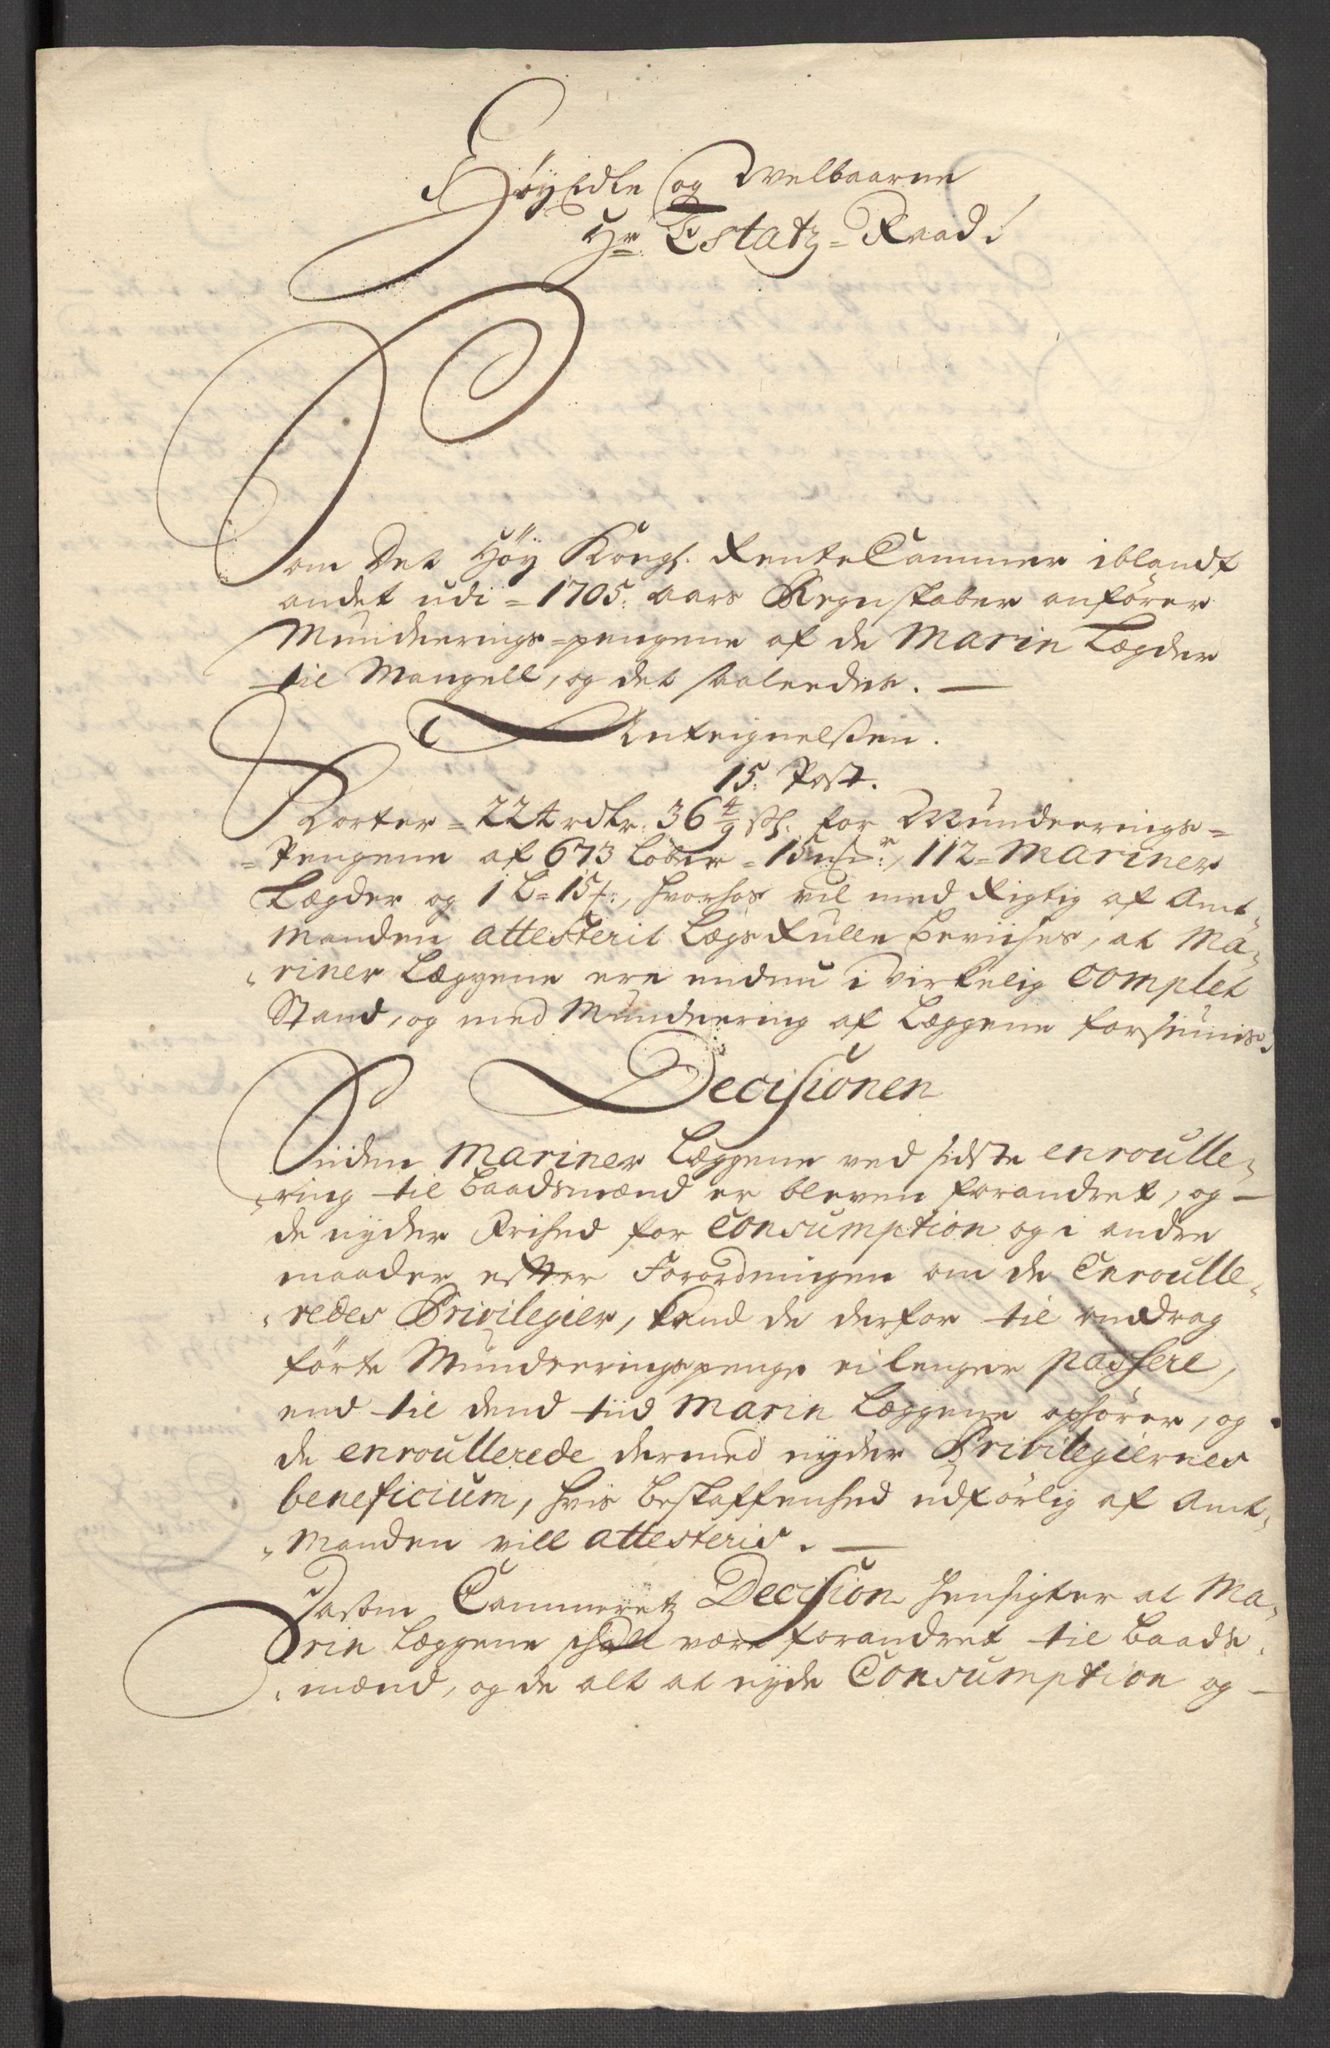 HøyEdle og Welbaarne
Hr: Estatz-Raad.
Som Det Høy Kongl. RenteCammer iblandt
andet udi = 1705: aars Regnskaber anfører
Munderings-pengene af de Marin Lægder
til Mangell, og det saaledes. —
Antegnelssen.
15. Post.
Korter = 224 rdlr: 36 4/9 ß: for Munderings-
-Pengene af 673 Løber = 15, 112 = Mariner
Lægder og 1 L = 15, hvorhos vil med Rigtig af Amt-
manden attesterit Lægs Rulle bevises, at Ma-
riner Læggene ere endnu i virkelig complet
Stand, og med Mundering af Læggene forsiunis.
Decisionen
Siden Mariner Læggene ved sidste enroulle-
ring til Baadsmænd er bleven forandret, og —
de nyder Frihed for Consumption og i andre
maader efter Forordningen om de Enroulle-
redes Privilegier, kand de derfor til andrag
førte Munderingspenge ei lenger passere,
end til dend tiid Marin Læggene ophører, og
de enroullerede dermed nyder Privilegiernes
beneficium, hvis beskaffenhed udførlig af Amt-
manden vill attesteris. —
Jasom Cammeretz Decision hensigter at Ma-
rin Læggene skall være forandret til Baads-
mænd, og de alt at nyde Consumption og —